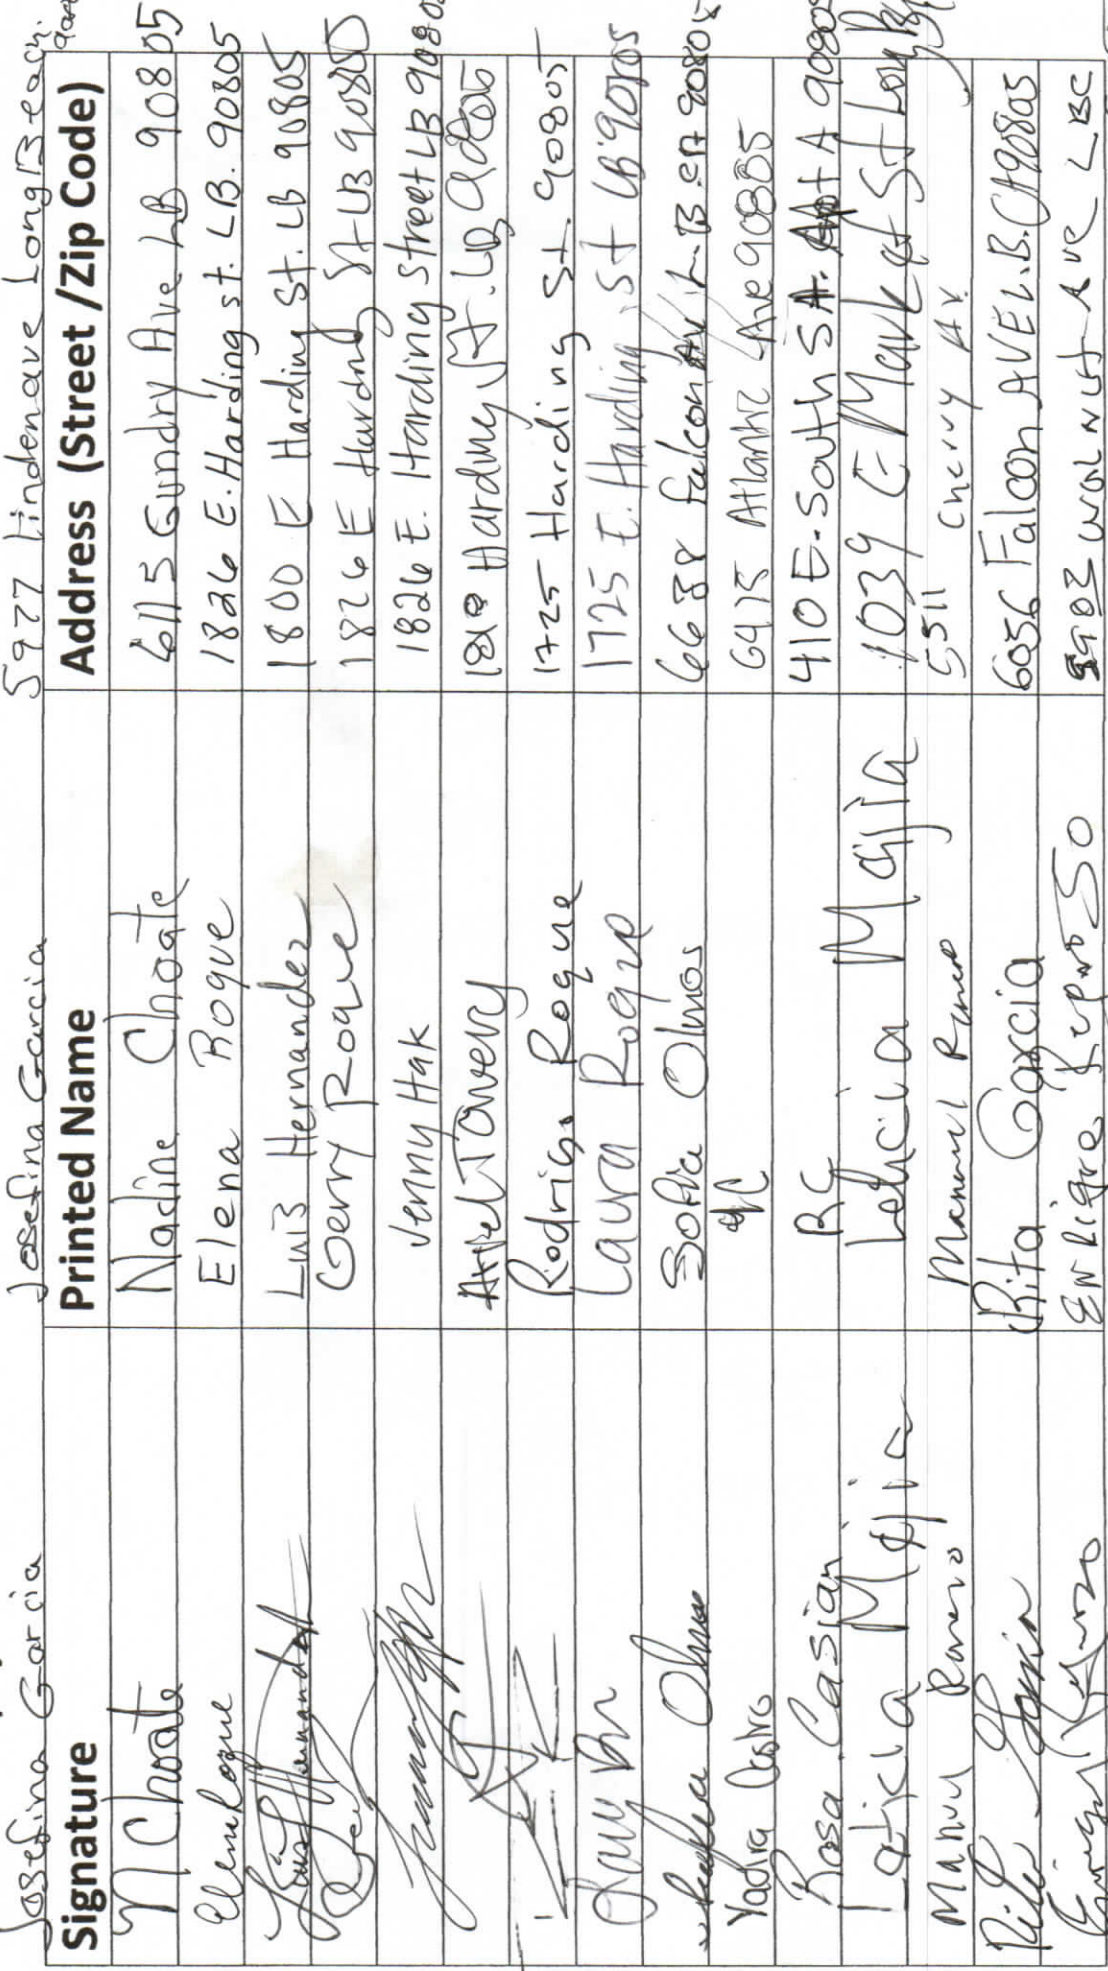 Josefina Garcia Josefina Garcia 5977 Lindenave Long Beach.
Signature Printed Name Address (Street /Zip Code)
N Choate Nadine Choate 6115 Gundry Ave LB 90805
Elena Roque Elena Roque 1826 E. Harding st. LB. 90805
Luis Hernandez Luis Hernandez 1800 E Harding St. LB 90805
Gerry Roque 1826 E Harding St LB 90805
Jenny Hak 1826 E. Harding Street LB 90805
Towery Harding St. LB 90805
Rodrigo Roque 1725 Harding St. 90805
Laura Roque 1725 E. Harding St LB 90805
Sofia Olmos 6638 falcon L.B. CA 90805
Yadira Castro YC 6475 Atlantic Ave 90805
Rosa Casian RC 410 E. South St. Apt A 90805
Leticia Mejia Leticia Mejia 1039 E Market St Long
Manuel Romero Manuel Romero 5511 Cherry Av.
Rita Garcia Rita Garcia 6056 Falcon AVE L.B. CA 90805
Enrique 5903 Walnut Ave LBC